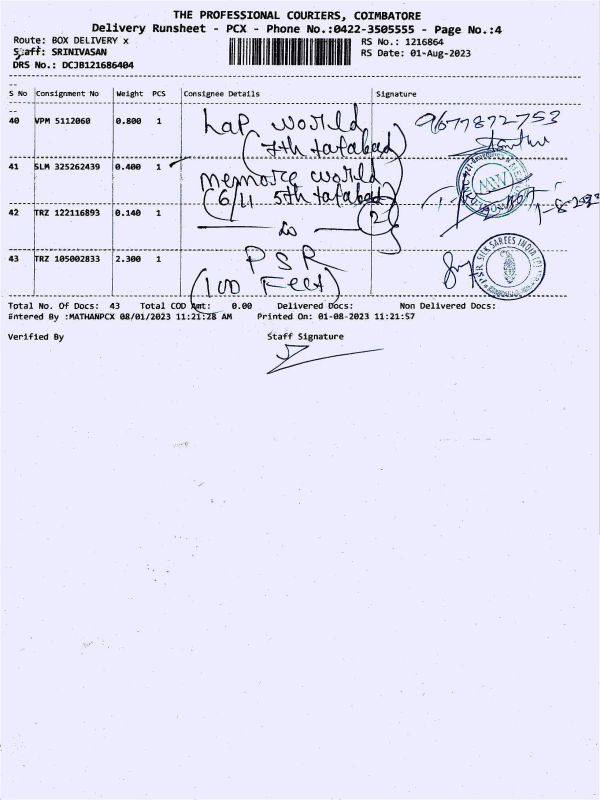 THE PROFESSIONAL COURIERS, COIMBATORE
Delivery Runsheet - PCX - Phone No.:0422-3505555 - Page No.:4
Route: BOX DELIVERY x RS No.: 1216864
Staff: SRINIVASAN RS Date: 01-Aug-2023
DRS No.: DCJB121686404
S No Consignment No Weight PCS Consignee Details Signature
40 VPM 5112060 0.800 1 Lap world 9677872753
(7th tatabad)
41 SLM 325262439 0.400 1
memore world
(6/11 5th tatabad)
42 TRZ 122116893 0.140 1 (2) 1-8-2023
do
43 TRZ 105002833 2.300 1 PSR PSR SILK SAREES INDIA
(100 Feet)
Total No. Of Docs: 43 Total COD Amt: 0.00 Delivered Docs: Non Delivered Docs:
Entered By :MATHANPCX 08/01/2023 11:21:28 AM Printed On: 01-08-2023 11:21:57
Verified By Staff Signature